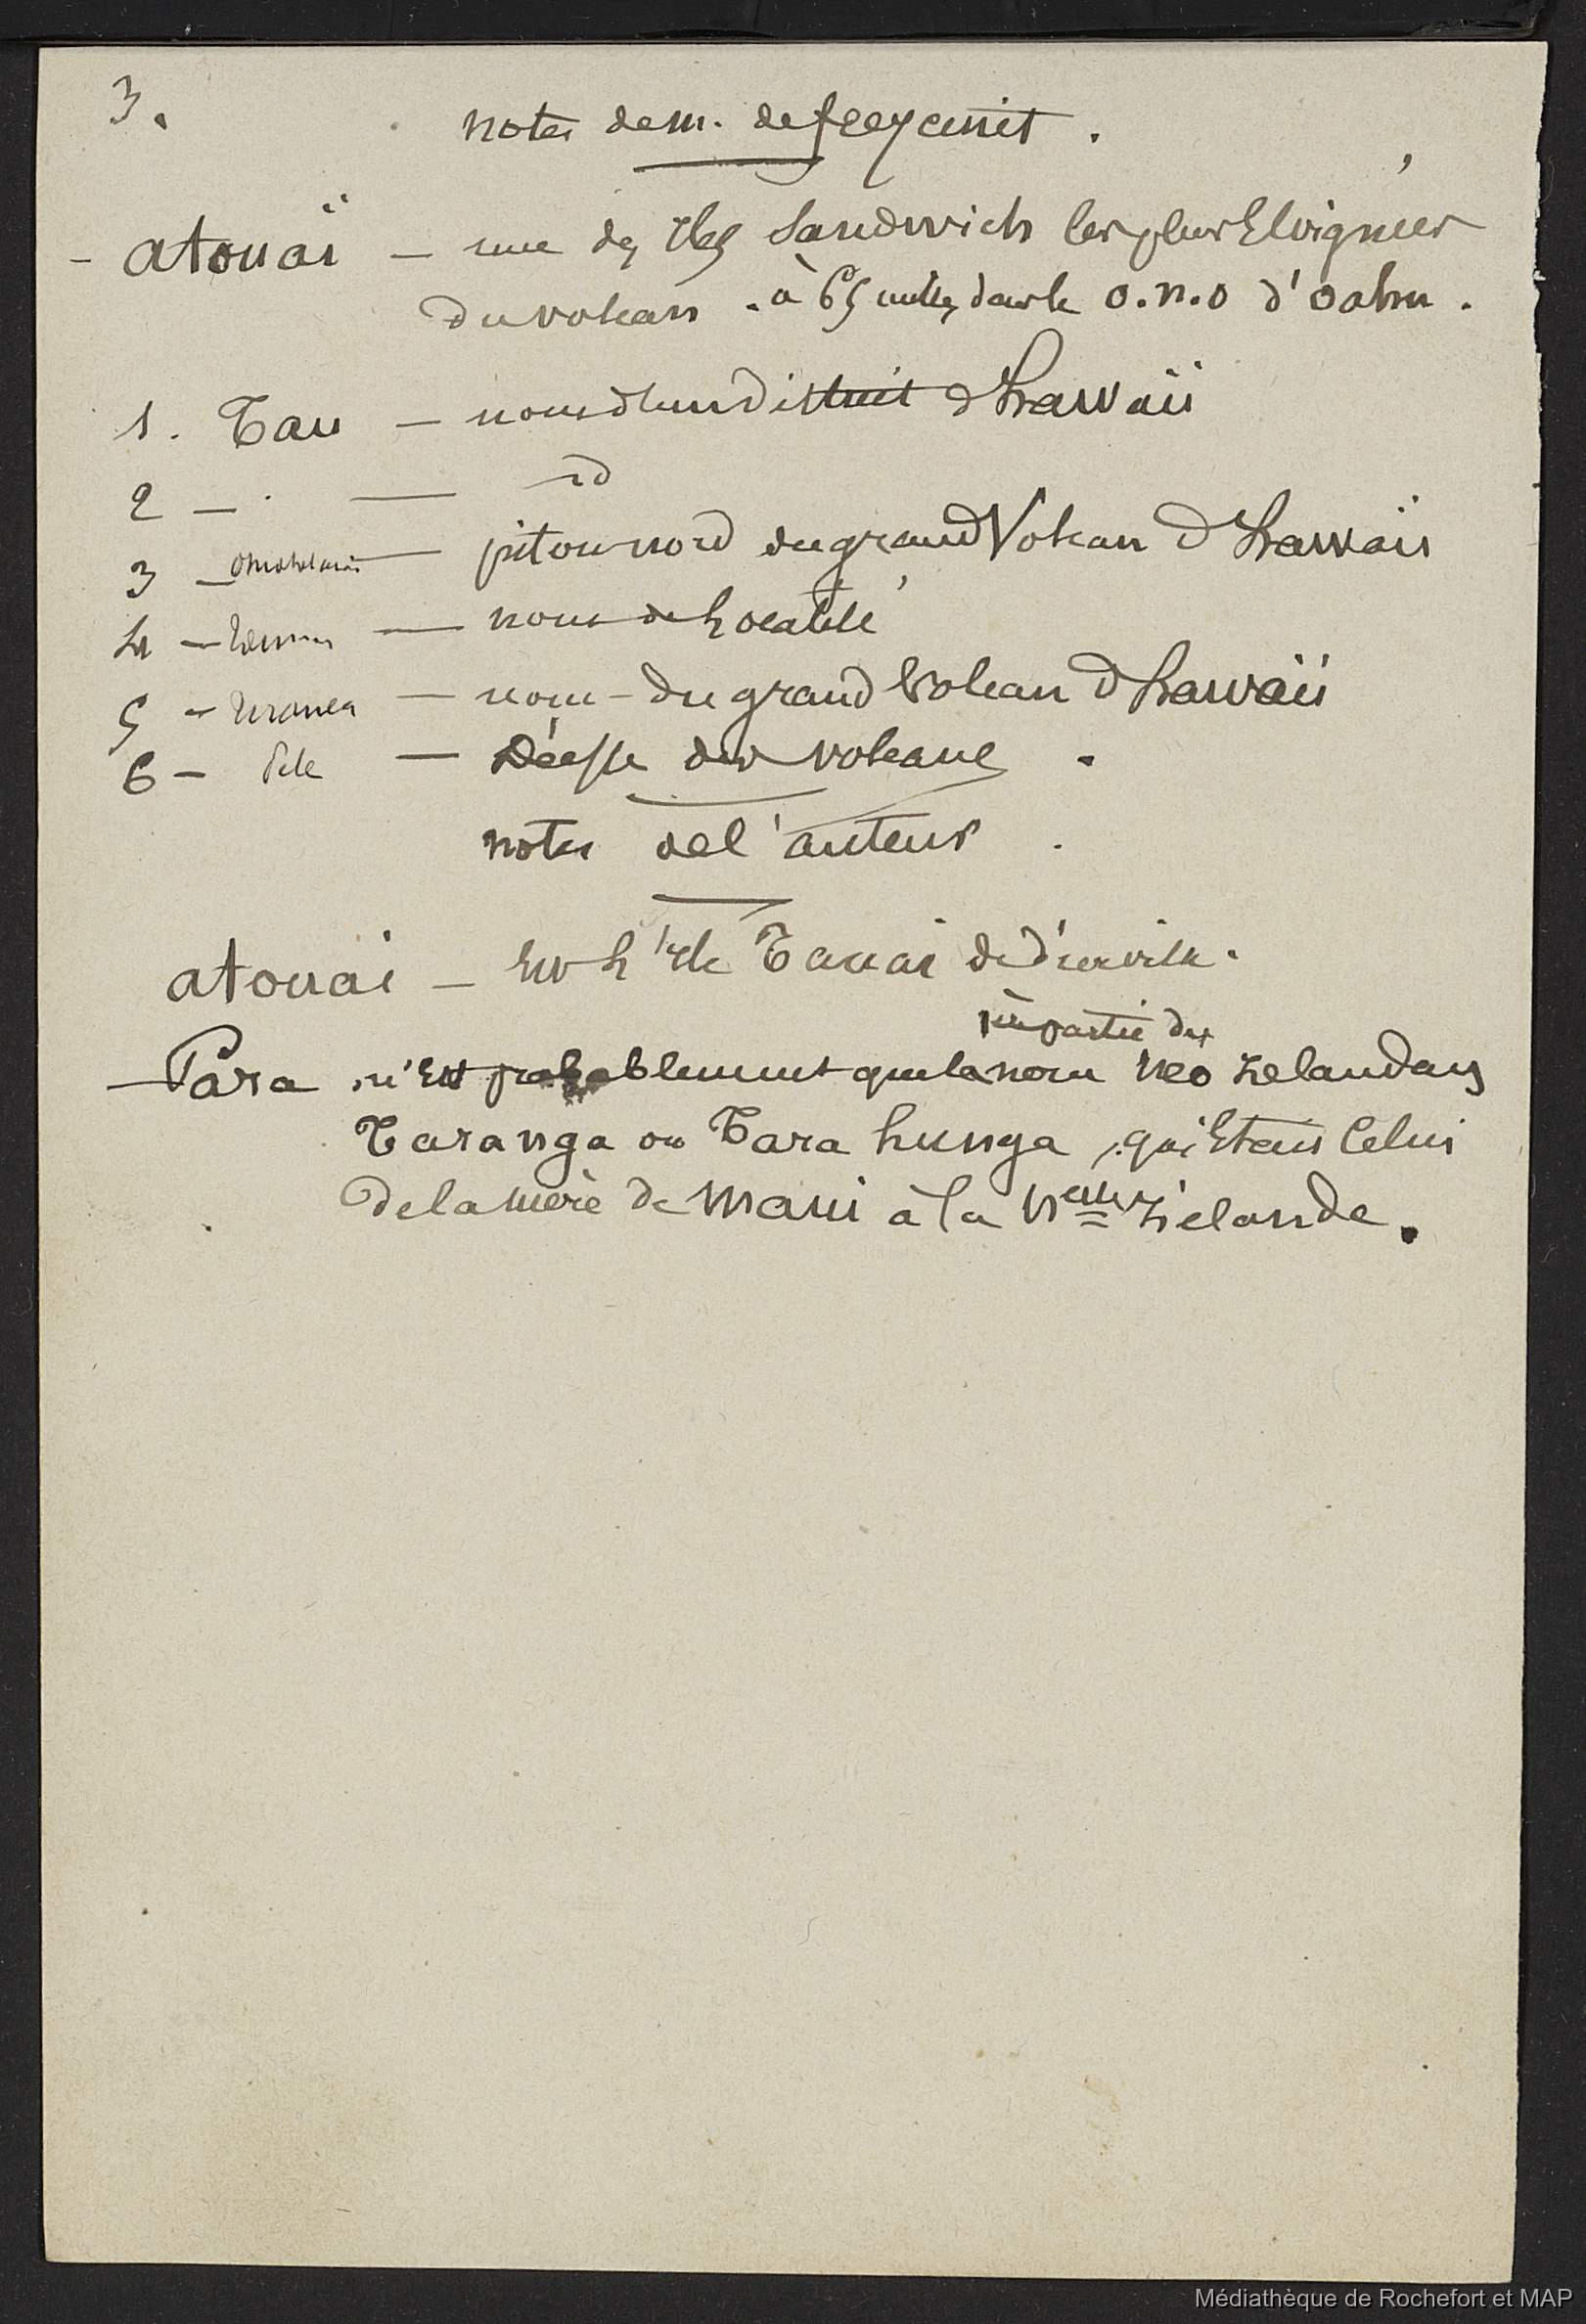 3.
notes de m. de freycinet.
- atouaï — une des Iles Sandwich les plus Eloignées
du volcan. à 65 milles dans le o.n.o d'oahu.
1. Tau — nom d'un district d'hawaïi
2 — . — id
3 — — piton nord du grand Volcan d'hawaïi
4 — — nom de localité
5 — — nom - du grand Volcan d'hawaïi
6 — Pele — Déesse des volcans.
notes de l'auteur.
atouai — Est l'ile Tauai de d'urville.
1ère partie du
— Para n'Est probablement que le nom neo zelandais
Taranga ou Tara hunga, qui Etais Celui
de la mère de maui à la Nelle Zelande.
Médiathèque de Rochefort et MAP